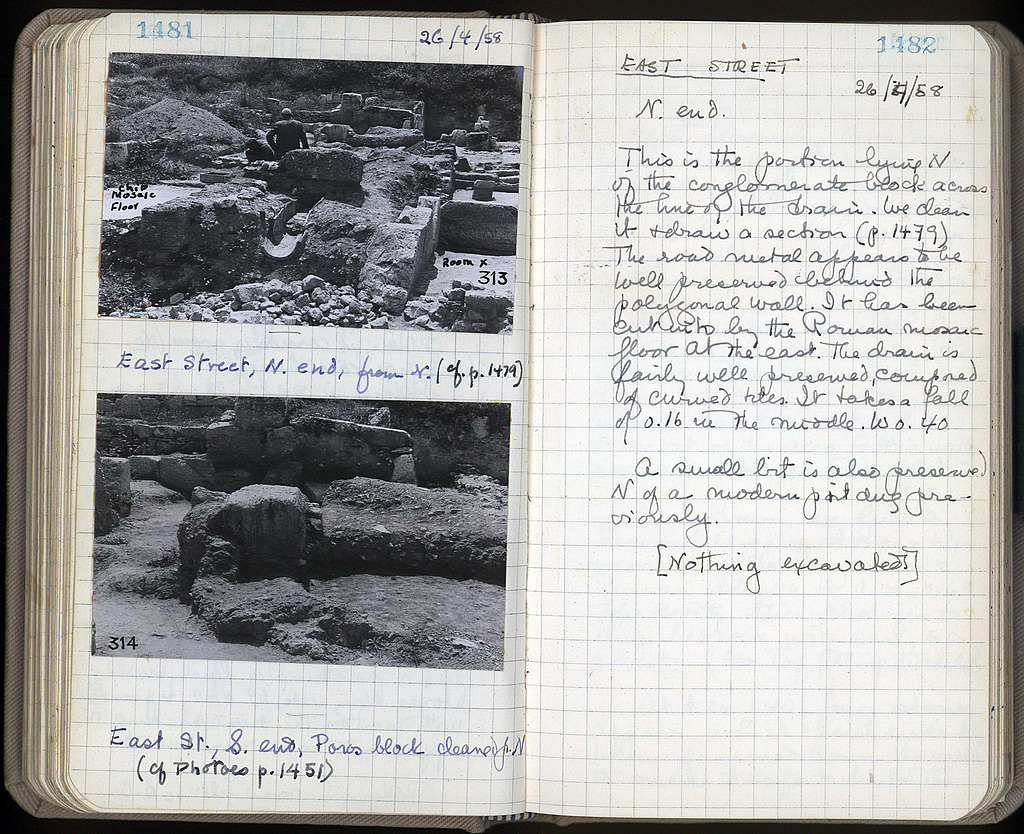 1481
26/4/58
Chip
Mosaic
Floor
Room X
313
East Street, N. end, from N. (cf. p. 1479)
314
East St., S. end, Poros block cleaned, fr. N
(cf Photoes p. 1451)
1482
EAST STREET
26/4/58
N. end.
This is the portion lying N
of the conglomerate block across
the line of the drain. We clean
it & draw a section (p. 1479)
The road metal appears to be
well preserved behind the
polygonal wall. It has been
cut into by the Roman mosaic
floor at the east. The drain is
fairly well preserved, composed
of curved tiles. It takes a fall
of 0.16 in the middle. W 0.40
A small bit is also preserved
N of a modern pit dug pre-
viously.
[Nothing excavated]